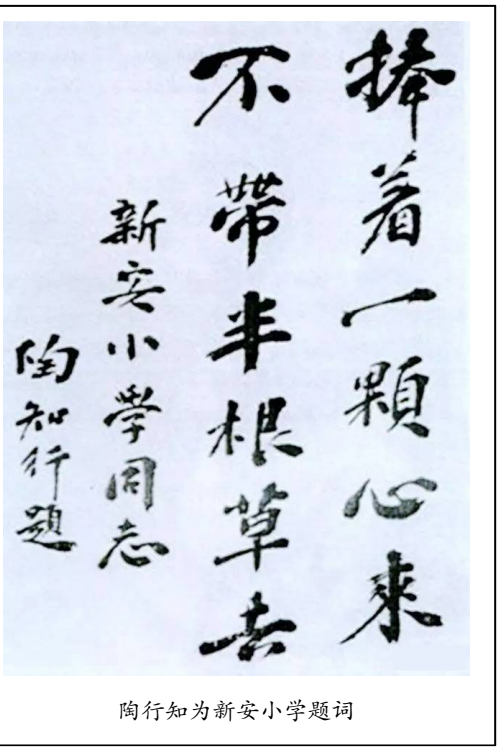 捧着一顆心來
不帶半根草去
新安小學同志
陶知行題
陶行知为新安小学题词